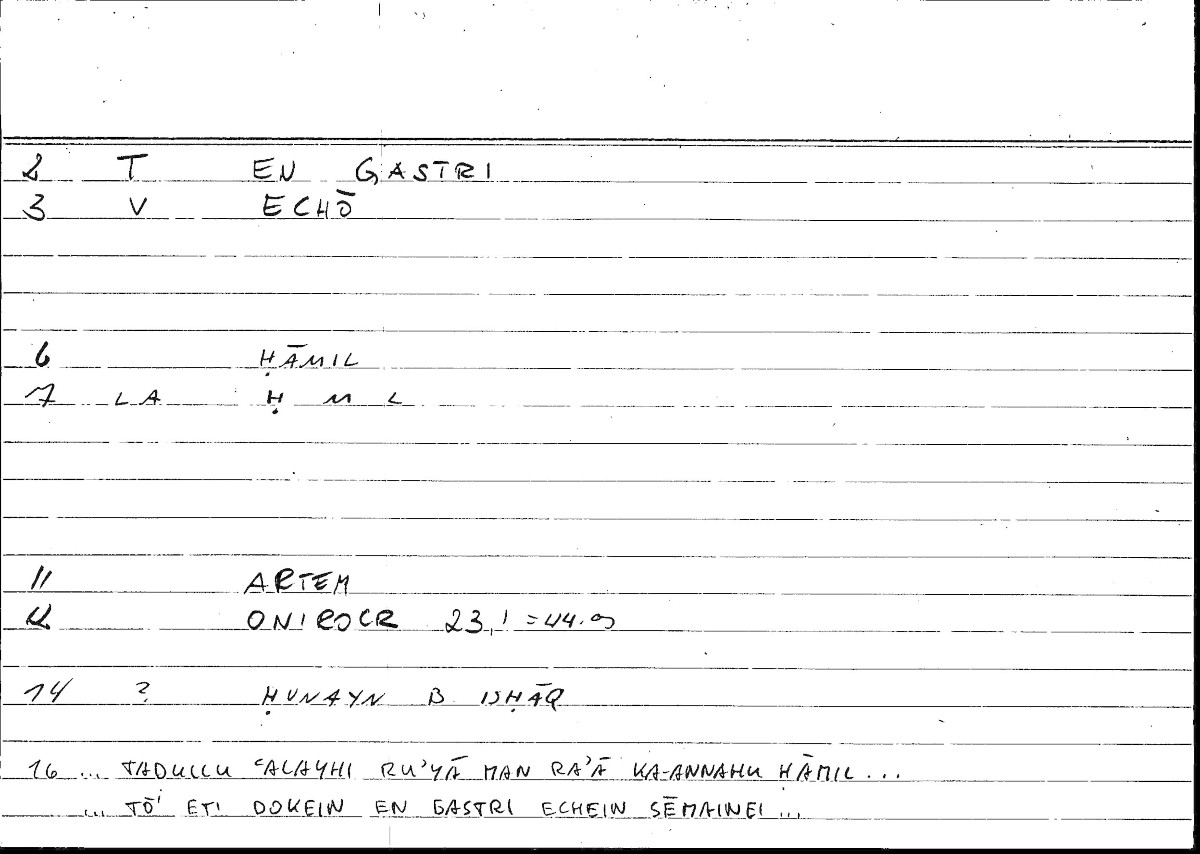 2 T EN GASTRI
3 V ECHŌ
6 ḤĀMIL
7 LA Ḥ M L
11 ARTEM
12 ONIROCR 23,1 = 44.
14 ? ḤUNAYN B ISḤĀQ
16 ... TADULLU ʿALAYHI RU'YĀ MAN RA'Ā KA-ANNAHU ḤĀMIL ...
... TŌ' ETI DOKEIN EN GASTRI ECHEIN SĒMAINEI ...